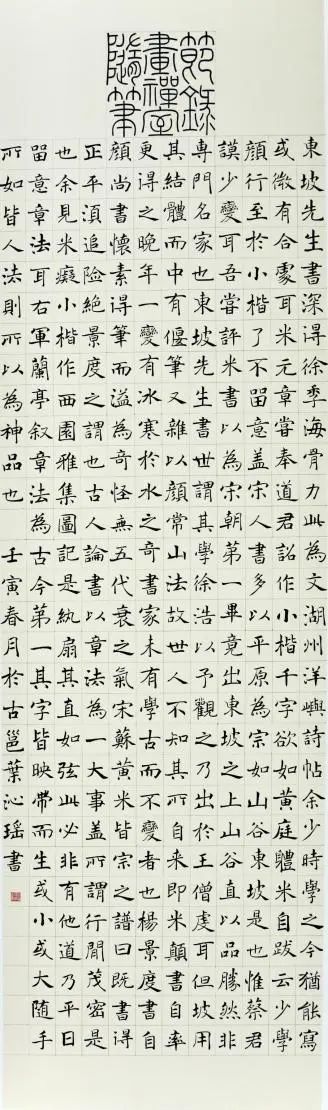 節錄
畫禪室
隨筆
東坡先生書深得徐季海骨力此為文湖州洋嶼詩帖余少時學之今猶能寫
或微有合處耳米元章嘗奉道君詔作小楷千字欲如黃庭體米自跋云少學
顏行至於小楷了不留意蓋宋人書多以平原為宗如山谷東坡是也惟蔡君
謨少變耳吾嘗評米書以為宋朝第一畢竟出東坡之上山谷直以品勝然非
專門名家也東坡先生書世謂其學徐浩以予觀之乃出於王僧虔耳但坡用
其結體而中有偃筆又雜以顏常山法故世人不知其所自來即米顛書自率
更得之晚年一變有冰寒於水之奇書家未有學古而不變者也楊景度書自
顏尚書懷素得筆而溢為奇怪無五代衰之氣宋蘇黃米皆宗之譜曰既書得
正平須追險絕景度之謂也古人論書以章法為一大事蓋所謂行間茂密是
也余見米癡小楷作西園雅集圖記是紈扇其直如弦此必非有他道乃平日
留意章法耳右軍蘭亭敘章法為古今第一其字皆映帶而生或小或大隨手
所如皆人法則所以為神品也 壬寅春月於古邕葉沁瑤書